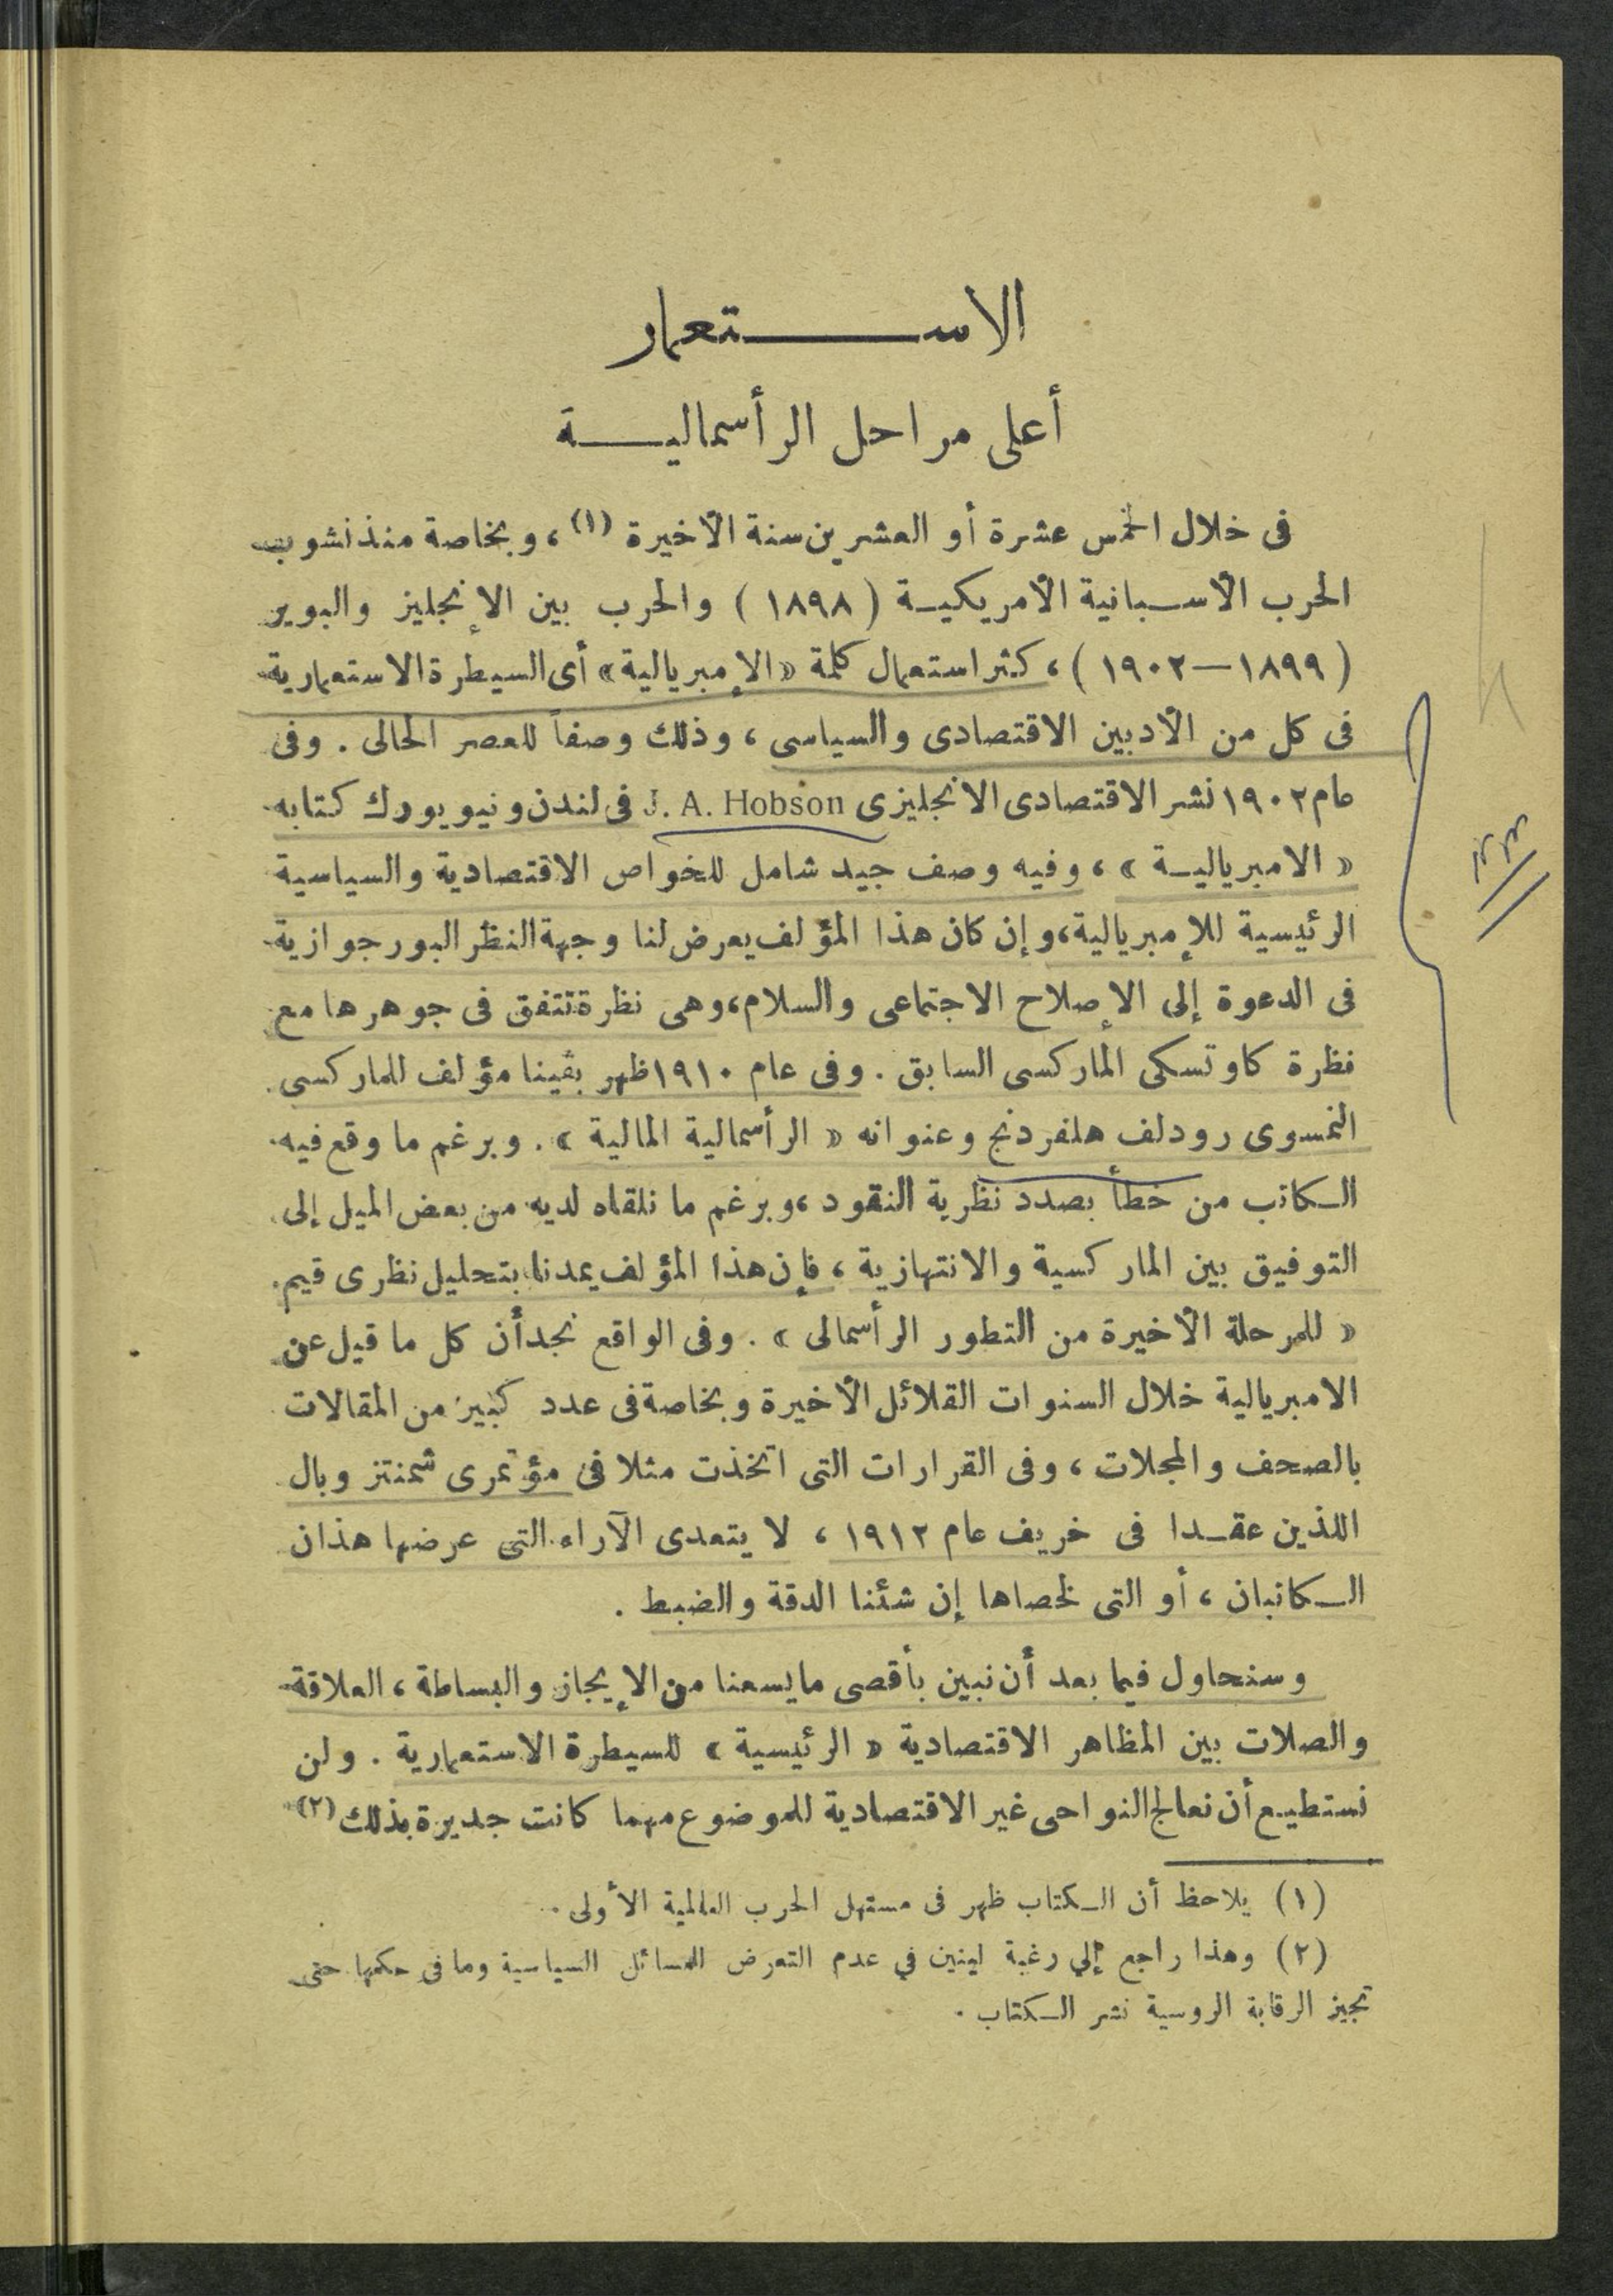 الاستعمار
أعلى مراحل الرأسمالية
فى خلال الخمس عشرة أو العشرين سنة الأخيرة (١)، وبخاصة منذ نشوب
الحرب الأسبانية الأمريكية (١٨٩٨) والحرب بين الإنجليز والبوير
(١٨٩٩—١٩٠٢)، كثر استعمال كلمة «الإمبريالية» أى السيطرة الاستعمارية
فى كل من الأدبين الاقتصادى والسياسى، وذلك وصفاً للعصر الحالى. وفى
عام ١٩٠٢ نشر الاقتصادى الانجليزى J. A. Hobson فى لندن ونيويورك كتابه
«الامبريالية»، وفيه وصف جيد شامل للخواص الاقتصادية والسياسية
الرئيسية للإمبريالية، وإن كان هذا المؤلف يعرض لنا وجهة النظر البورجوازية
فى الدعوة إلى الإصلاح الاجتماعى والسلام، وهى نظرة تتفق فى جوهرها مع
نظرة كاوتسكى الماركسى السابق. وفى عام ١٩١٠ ظهر بڤينا مؤلف للماركسى
النمسوى رودلف هلفردنج وعنوانه «الرأسمالية المالية». وبرغم ما وقع فيه
الكاتب من خطأ بصدد نظرية النقود، وبرغم ما نلقاه لديه من بعض الميل إلى
التوفيق بين الماركسية والانتهازية، فإن هذا المؤلف يمدنا بتحليل نظرى قيم
«للمرحلة الأخيرة من التطور الرأسمالى». وفى الواقع نجد أن كل ما قيل عن
الامبريالية خلال السنوات القلائل الأخيرة وبخاصة فى عدد كبير من المقالات
بالصحف والمجلات، وفى القرارات التى اتخذت مثلا فى مؤتمرى شمنتز وبال
اللذين عقدا فى خريف عام ١٩١٢، لا يتعدى الآراء التى عرضها هذان
الكاتبان، أو التى لخصاها إن شئنا الدقة والضبط.
وسنحاول فيما بعد أن نبين بأقصى ما يسعنا من الإيجاز والبساطة، العلاقة
والصلات بين المظاهر الاقتصادية «الرئيسية» للسيطرة الاستعمارية. ولن
نستطيع أن نعالج النواحى غير الاقتصادية للموضوع مهما كانت جديرة بذلك (٢)
(١) يلاحظ أن الكتاب ظهر فى مستهل الحرب العالمية الأولى.
(٢) وهذا راجع إلي رغبة لينين في عدم التعرض للمسائل السياسية وما فى حكمها حتى
تجيز الرقابة الروسية نشر الكتاب.